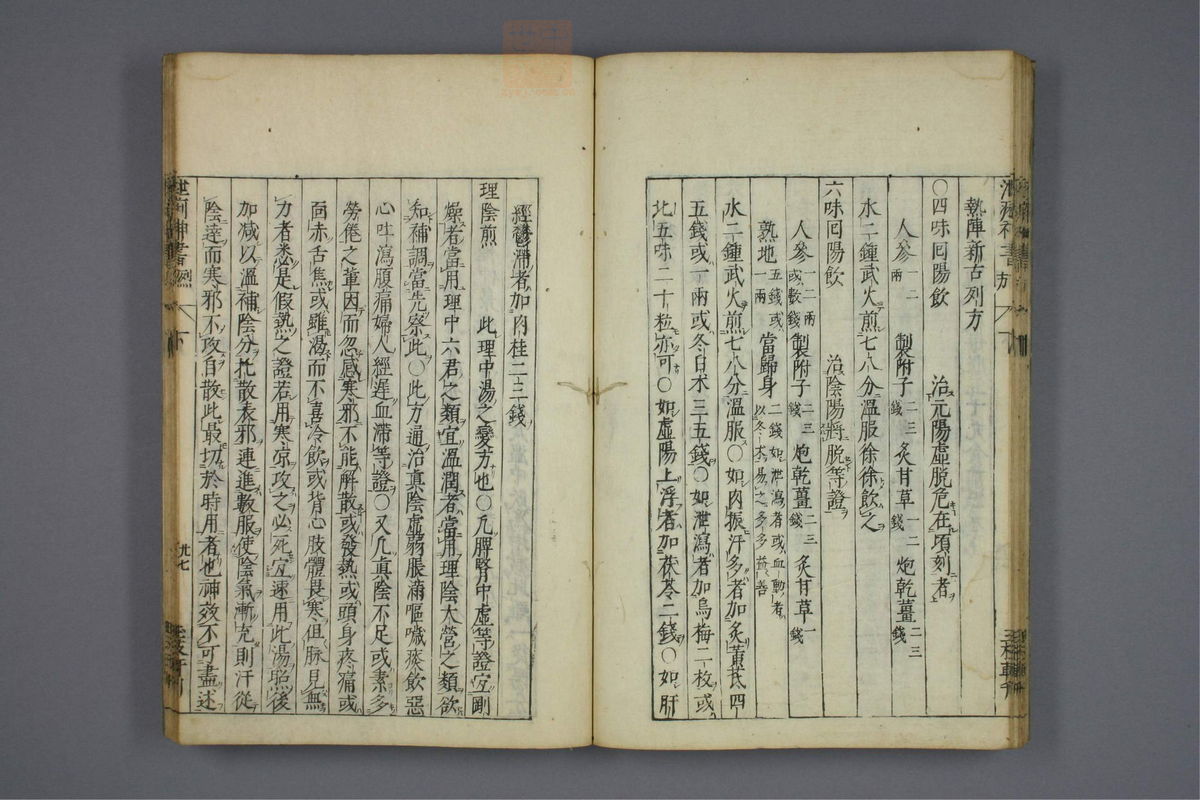 熱陣新古列方
○四味回陽飲 治元陽虛脱危在頃刻者
人參一二兩 製附子二三錢 炙甘草一二錢 炮乾薑二三錢
水二鍾武火煎七八分溫服徐徐飲之
六味回陽飲 治陰陽將脱等證
人參一二兩或數錢 製附子二三錢 炮乾薑二三錢 炙甘草一錢
熟地五錢或一兩 當歸身二錢如泄瀉者或血動者以冬术易之多多益善
水二鍾武火煎七八分溫服○如肉振汗多者加炙黃芪四
五錢或一兩或冬白术三五錢○如泄瀉者加烏梅二枚或
北五味二十粒亦可○如虛陽上浮者加茯苓二錢○如肝
經鬱滯者加肉桂二三錢
理陰煎 此理中湯之變方也○凡脾腎中虛等證宜剛
燥者當用理中六君之類宜溫潤者當用理陰大營之類欲
知補調當先察此○此方通治真陰虛弱脹滿嘔噦痰飲惡
心吐瀉腹痛婦人經遲血滯等證○又凡真陰不足或素多
勞倦之輩因而忽感寒邪不能解散或發熱或頭身疼痛或
面赤舌焦或雖渴而不喜冷飲或背心肢體畏寒但脉見無
力者悉是假熱之證若用寒凉攻之必死宜速用此湯照後
加减以溫補陰分托散表邪連進數服使陰氣漸充則汗從
陰達而寒邪不攻自散此最切於時用者也神效不可盡述
卅七